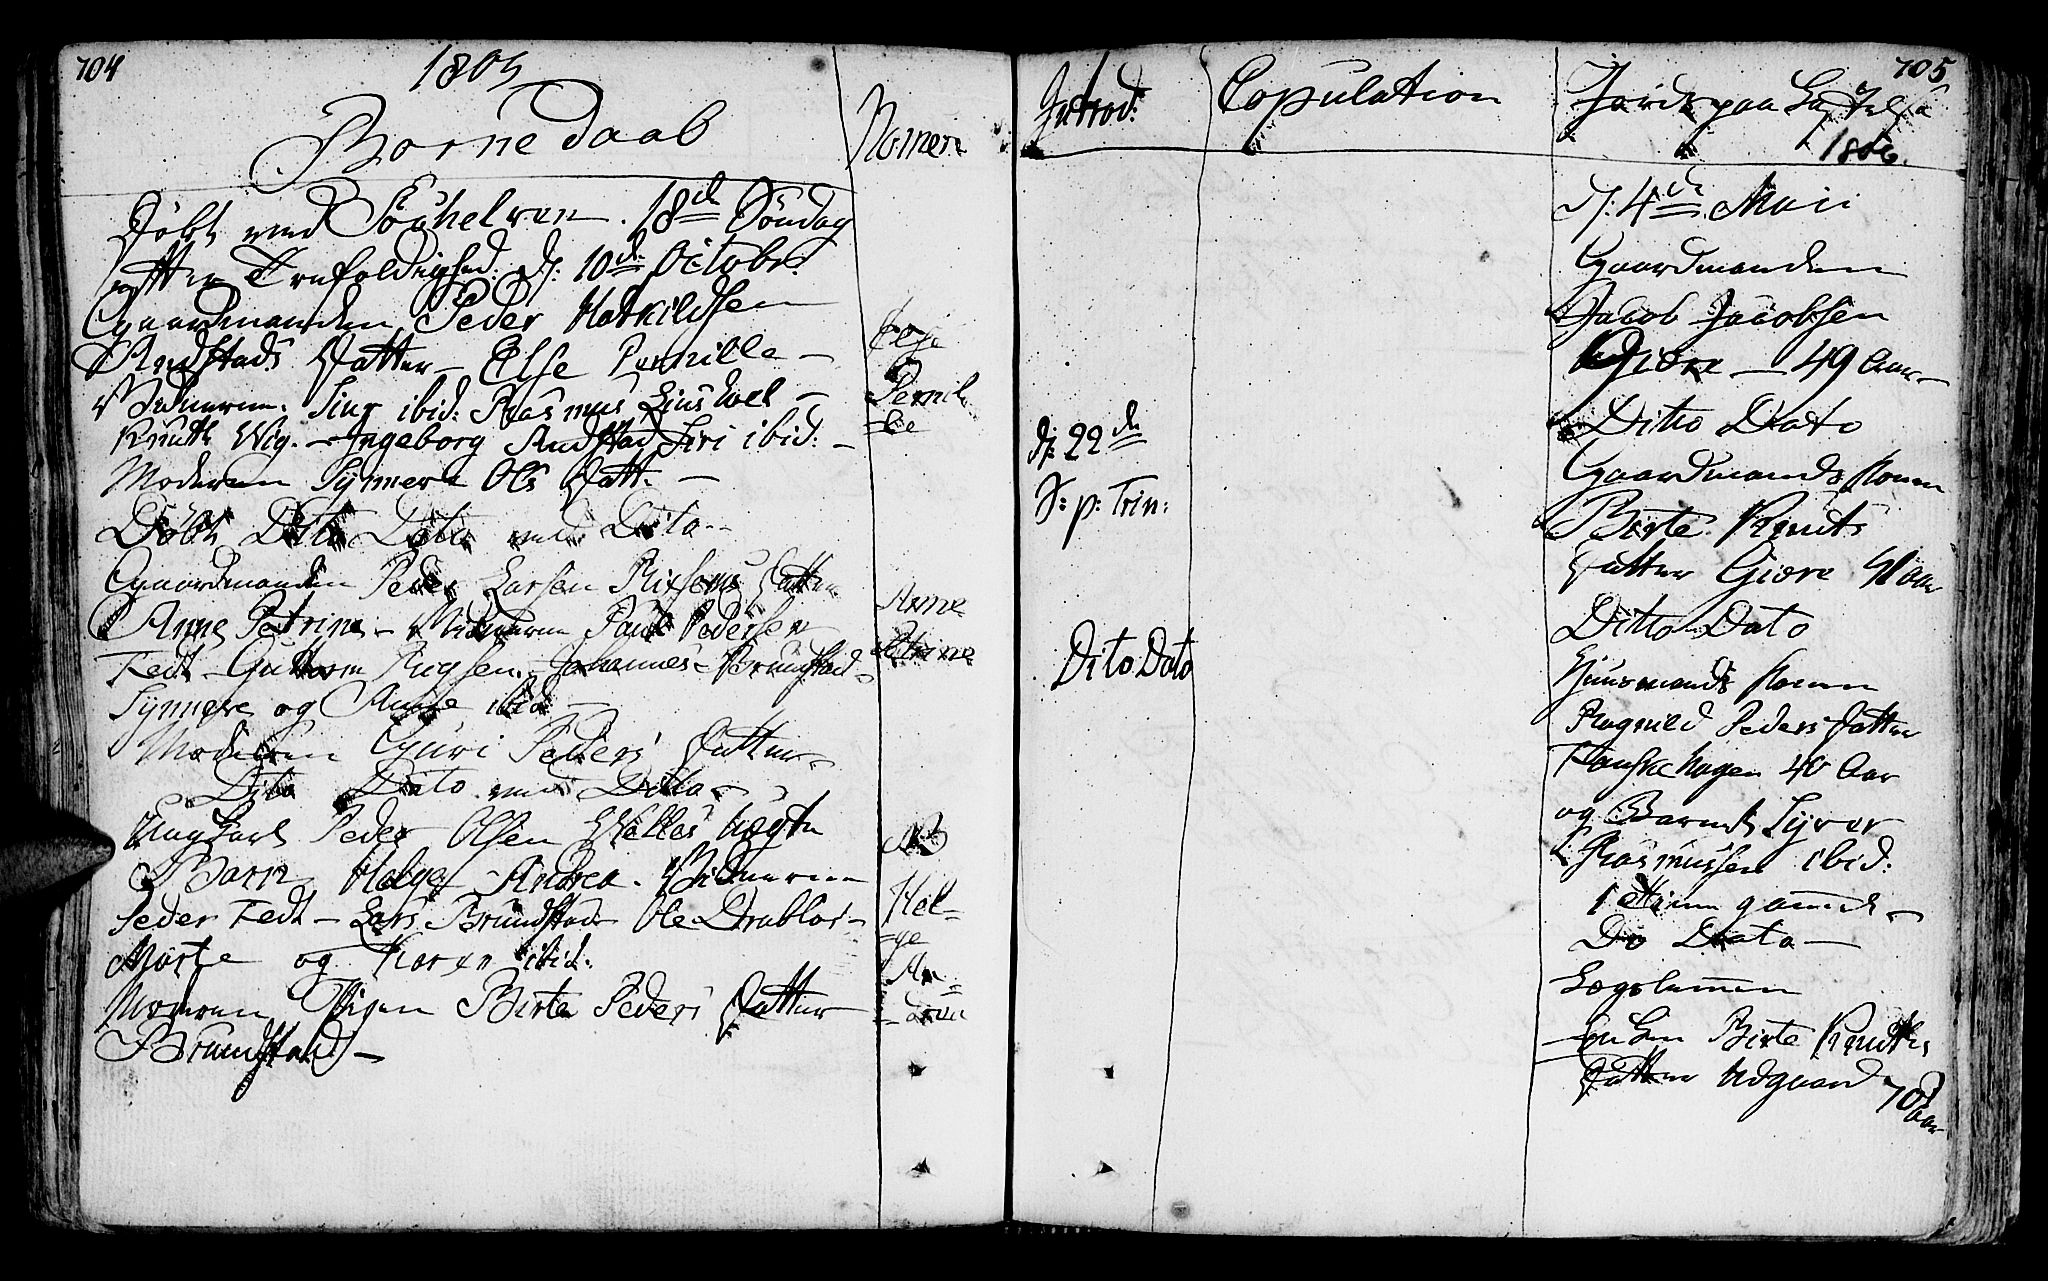 104
1805
Børne daab
Nomen
Døbt ved Søuhelven. 18de Søndag
efter Trefoldighed. d: 10de Octobr:
Gaardmanden Peder Hotkildsen
Rudstads Datter – Else Pernille –
Vidnerne. Siur ibid: Rasmus
Knuth Wig. – Ingeborg Rudstad Siri ibid: –
Moderen Synnere Ols Datt. –
Else
Pernil
=le
Døbt Dito Dato ved Dito –
Gaardmanden Peder Larsen Datter
Anne Petrine – Vidnerne Paul Pedersen
Fedt – Guttorm Johannes Brunstad –
Synnere og Anne ibid –
Moderen Guri Peders Datter –
Anne
Petrine
Dito Dato ved Ditto –
Ungkarl Peder Olsen Welles uægte
Barn Helge Andrea. Vidnerne
Peder Fedt – Lars Brunstad Ole Drablos –
Marte og Karen ibid.
Moderen Pigen Birte Peders Datter
Brunstad –
NB
Hel=
=ge
An=
=drea
105
Introd:
d: 22de
S: p: Trin:
Dito Dato
Copulation
Jords paa
1806.
d: 4de Maii
Gaardmanden
Jacob Jacobsen
Giøre – 49 Aar –
Ditto Dato
Gaardmands Konen
Birte Knuts
Datter Giøre 41 aar
Ditto Dato
Huusmands Konen
Ragnild Peders Datter
Hanskehagen 40 Aar
og Barnet Syver
Rasmussen ibid:
1 Time gammel –
Do Dato –
Lægslemmen
Enken Birte Knuths
Datter Udgaard
70 Aar